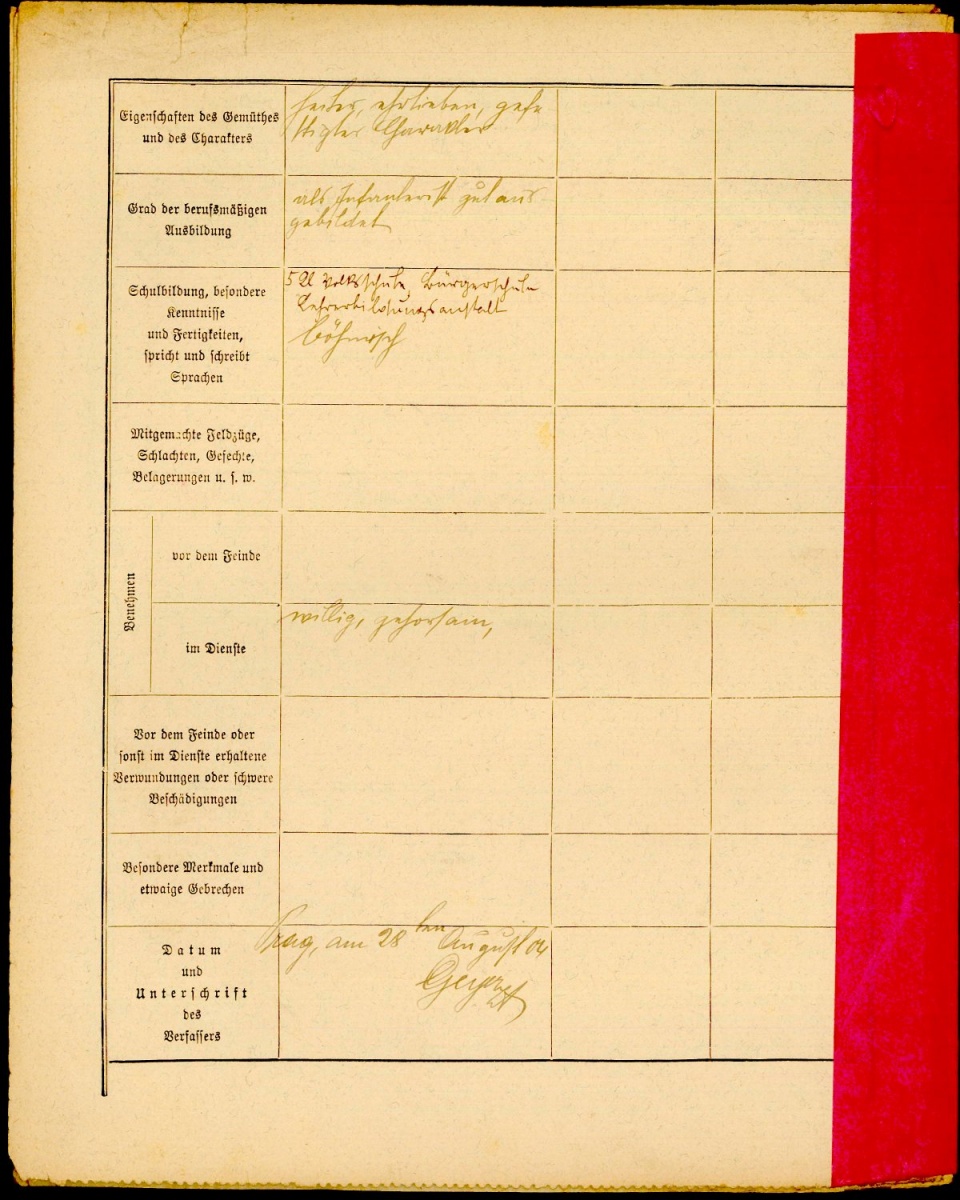 Eigenschaften des Gemüthes
und des Charakters
heiter, ehrliebend, gefe-
stigter Charakter
Grad der berufsmäßigen
Ausbildung
als Infanterist gut aus-
gebildet
Schulbildung, besondere
Kenntnisse
und Fertigkeiten,
spricht und schreibt
Sprachen
5 Kl Volksschule, Bürgerschule
Lehrerbildungsanstalt
Böhmisch
Mitgemachte Feldzüge,
Schlachten, Gefechte,
Belagerungen u. s. w.
Benehmen
vor dem Feinde
im Dienste
willig, gehorsam,
Vor dem Feinde oder
sonst im Dienste erhaltene
Verwundungen oder schwere
Beschädigungen
Besondere Merkmale und
etwaige Gebrechen
Datum
und
Unterschrift
des
Verfassers
Prag, am 28ten August 04